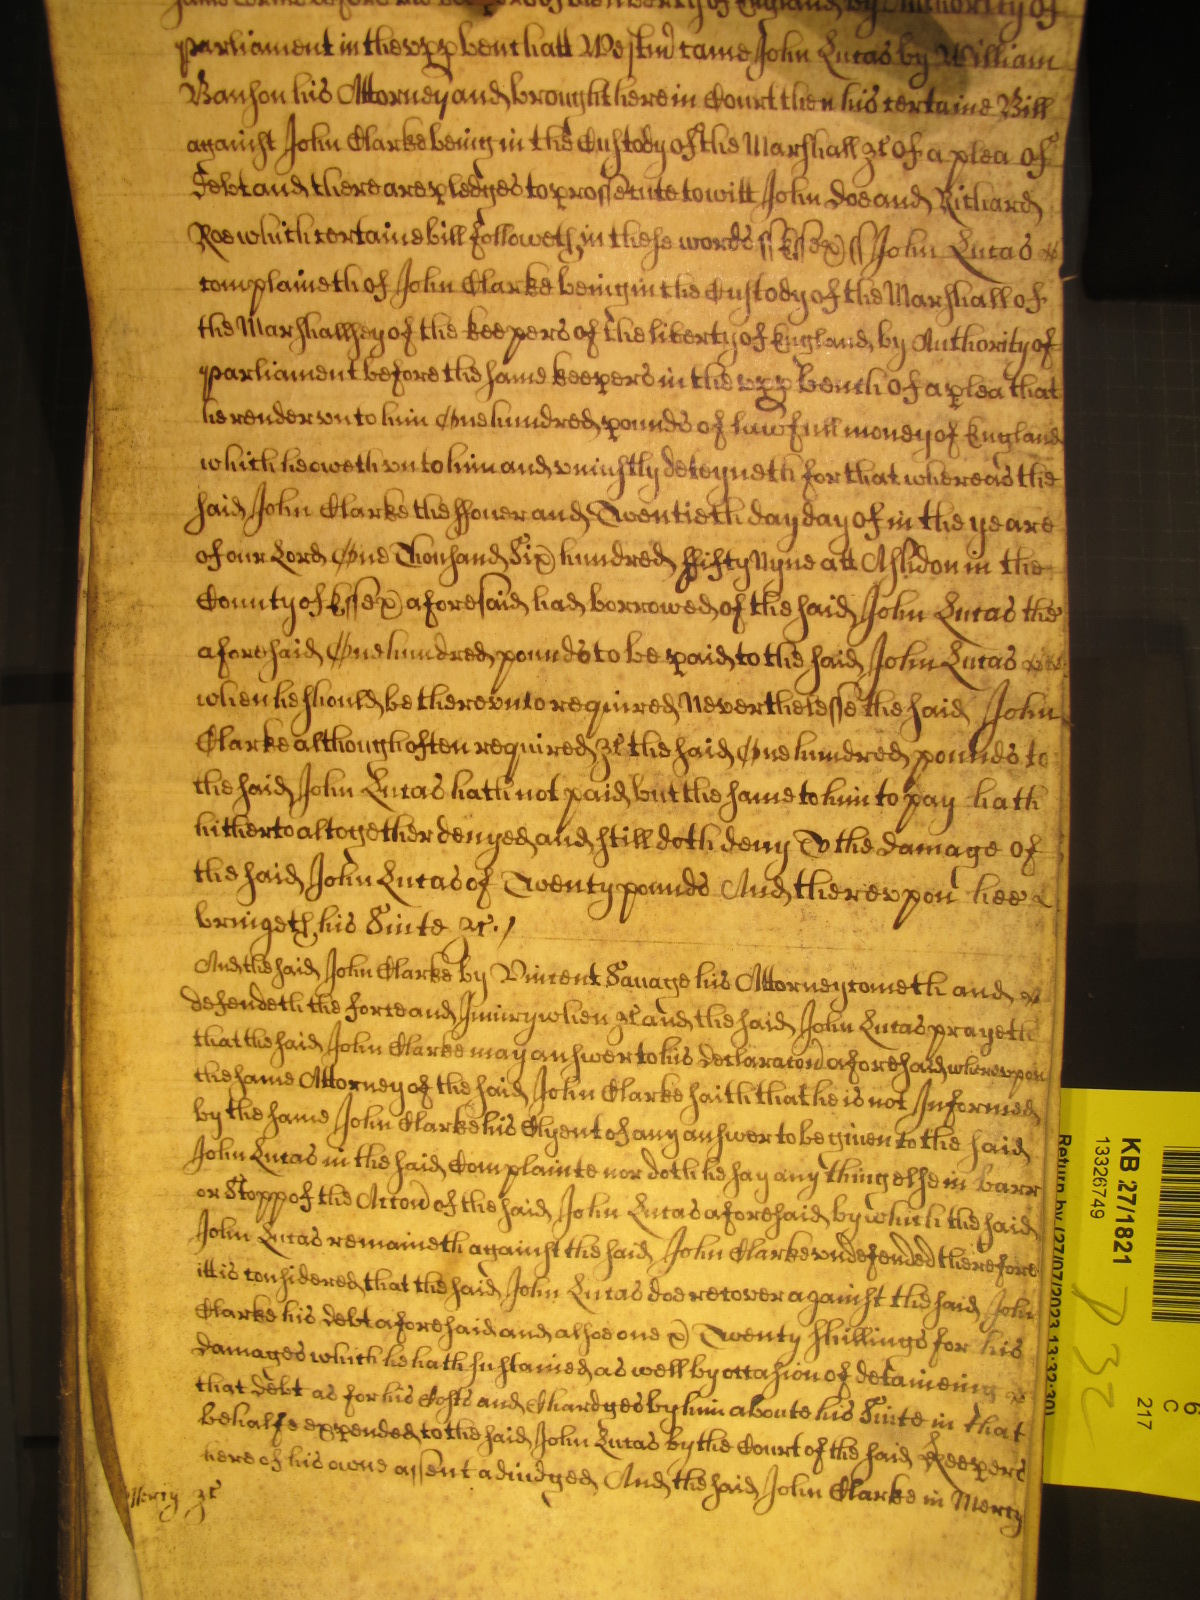 same terme before the keepers of the liberty of England by Authority of
Parliament in the vpp bench att Westm came John Lucas by William
Banson his Attorney and brought here in Court then his certaine Bill
against John Clarke being in the Custody of the Marshall &c of a plea of
Debt and there are pledges to prossecute to witt John Doe and Richard
Roe which certaine bill followeth in these words ss Essex ss John Lucas
complaineth of John Clarke being in the Custody of the Marshall of
the Marshallsey of the keepers of the liberty of England by Authority of
Parliament before the same keepers in the vpp bench of a plea that
he render vnto him One hundred pounds of lawfull money of England
which he oweth vnto him and vniustly deteyneth for that whereas the
said John Clarke the ffouer and Twentieth day day of in the yeare
of our Lord One Thousand Six hundred ffifty Nyne att Ashdon in the
County of Essex aforesaid had borrowed of the said John Lucas the
aforesaid One hundred pounds to be paid to the said John Lucas
when he should be therevnto required Neverthelesse the said John
Clarke although often required &c the said One hundred pounds to
the said John Lucas hath not paid but the same to him to pay hath
hitherto altogether denyed and still doth deny To the damage of
the said John Lucas of Twenty pounds And therevpon hee
bringeth his Suite &c./
And the said John Clarke by Vincent Sauage his Attorney cometh and
defendeth the force and Iniury when &c and the said John Lucas prayeth
that the said John Clarke may answer to his declaracon aforesaid wherevpon
the same Attorney of the said John Clarke saith that he is not Informed
by the same John Clarke his Clyent of any answer to be giuen to the said
John Lucas in the said Complainte nor doth he say any thing else in barr
or Stopp of the Accon of the said John Lucas aforesaid by which the said
John Lucas remaineth against the said John Clarke vndefended therefore
itt is considered that the said John Lucas doe recover against the said John
Clarke his debt aforesaid and alsoe one x Twenty shillings for his
damages which he hath sustained as well by occasion of detaineing
that debt as for his Costs and Chardges by him aboute his Suite in that
behalfe expended to the said John Lucas by the Court of the said Keepers
here of his owne assent adiudged And the said John Clarke in Mercy
Mercy &c
KB 27/1821
13326749
Return by (27/07/2023 13:32:30)
6
C
217